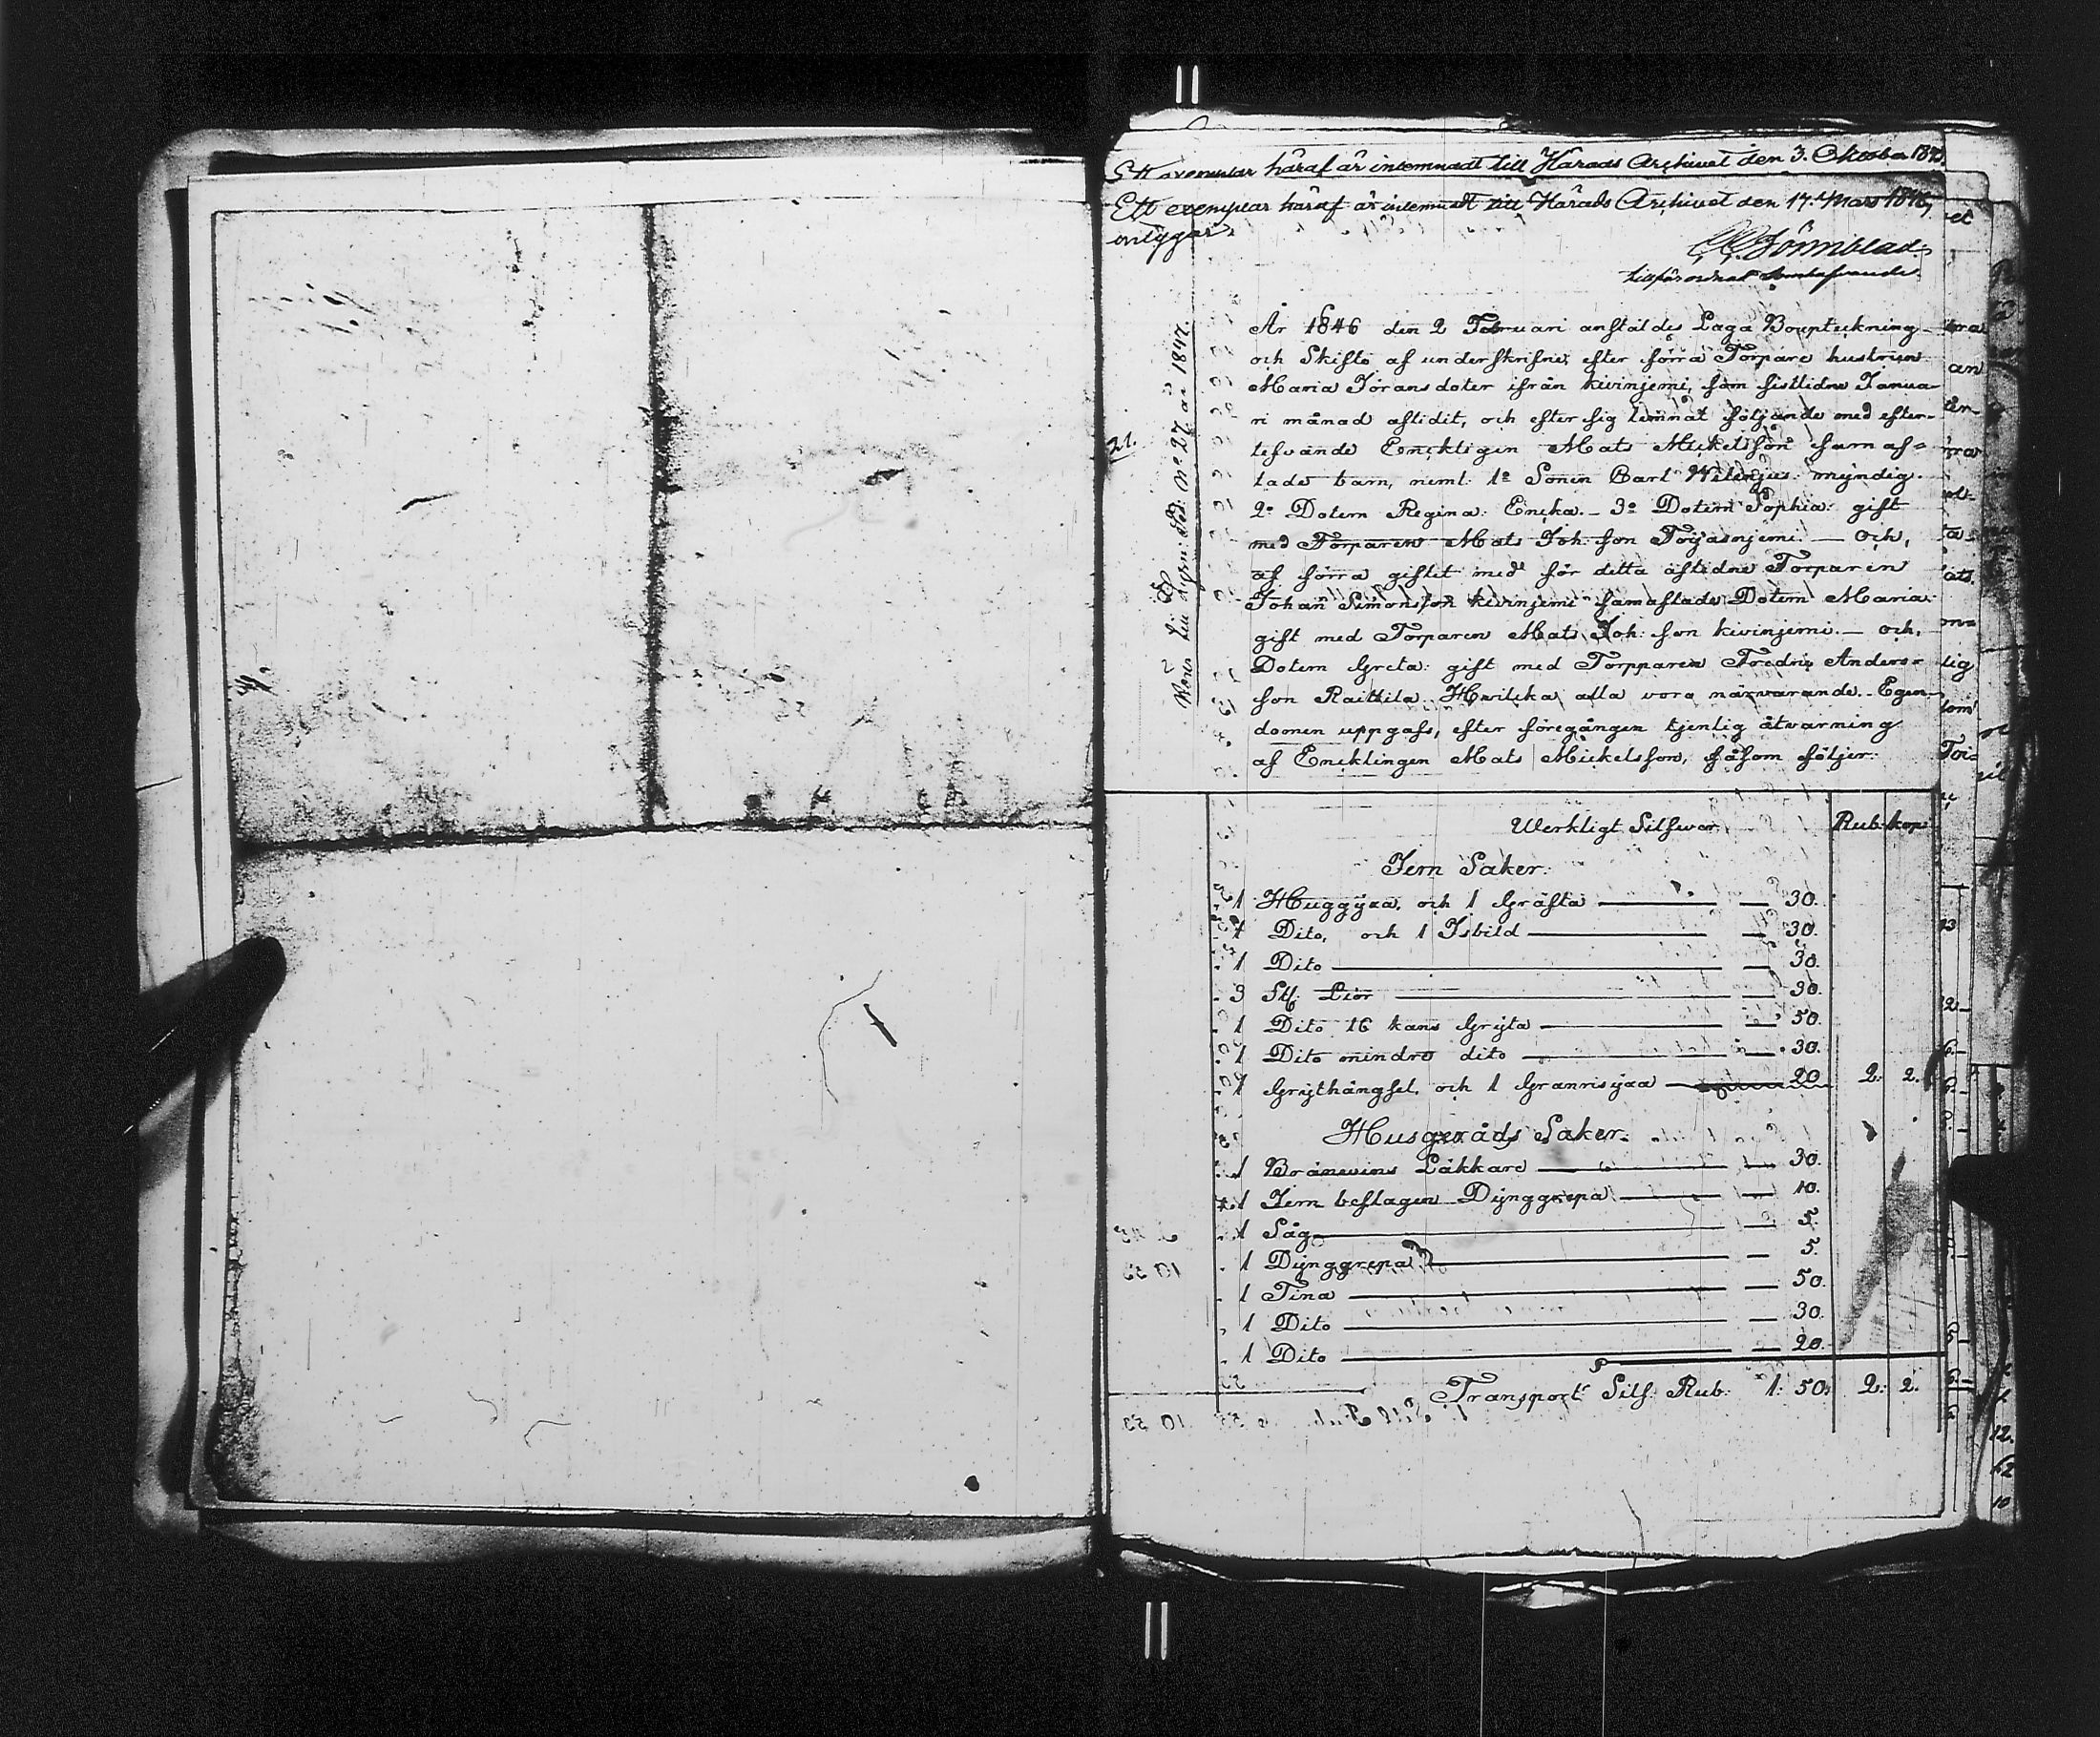 Ett exemplar häraf är inlemnadt till Härads Archivet den 3. Oktober
Ett exemplar häraf är inlemnadt till Härads Archivet den 17. Mars 1846,
intygar.
tillförordnad
21.
N:o 27 år 1847.
År 1846 den 2 Februari anstäldes Laga Bouptekning
och Skifte af underskrifne, efter förra Torpare hustrun
Maria Jörans doter ifrån Kivinjemi, som sistlidne Janua-
ri månad aflidit, och efter sig lemnat följande med efter-
lefvande Encklign Mats Mickelsson samaf-
lade barn, neml: 1o Sonen Carl myndig.
2o Dotern Regina: Encka. _ 3o Dotern Sophia: gift
med Torparen Mats Joh: son _ och,
af förra giftet med för detta aflidne Torparen
Johan Simonsson Kivinjemi samaflade Dotern Maria:
gift med Torparen Mats Joh: son Kivinjemi. _ och,
Dotern Greta: gift med Torpparen Fredric Anders-
son Raittila. Hvilcka alla vora närvarande. Egen-
domen uppgafs, efter föregången tjenlig åtvarning
af Encklingen Mats Mickelsson, såsom följer:
Werkligt Silfver Rub. kop:
Jern Saker:
1 Huggyxa, och 1 Gräfta — 30.
1 Dito, och 1 Isbild — 30.
1 Dito — 30.
3 St: Liör — 30.
1 Dito 16 kans Gryta — 50.
1 Dito mindre dito — 30.
1 Grythängsel, och 1 Granrisyxa — 20 2: 2.
Husgeråds Saker.
1 Bränevins Läkkare — 30.
1 Jern beslagen Dynggrepa — 10.
1 Såg — 5.
1 Dynggrepa — 5.
1 Tina — 50.
1 Dito — 30.
1 Dito — 20.
Transport Silf: Rub: 1: 50. 2: 2.